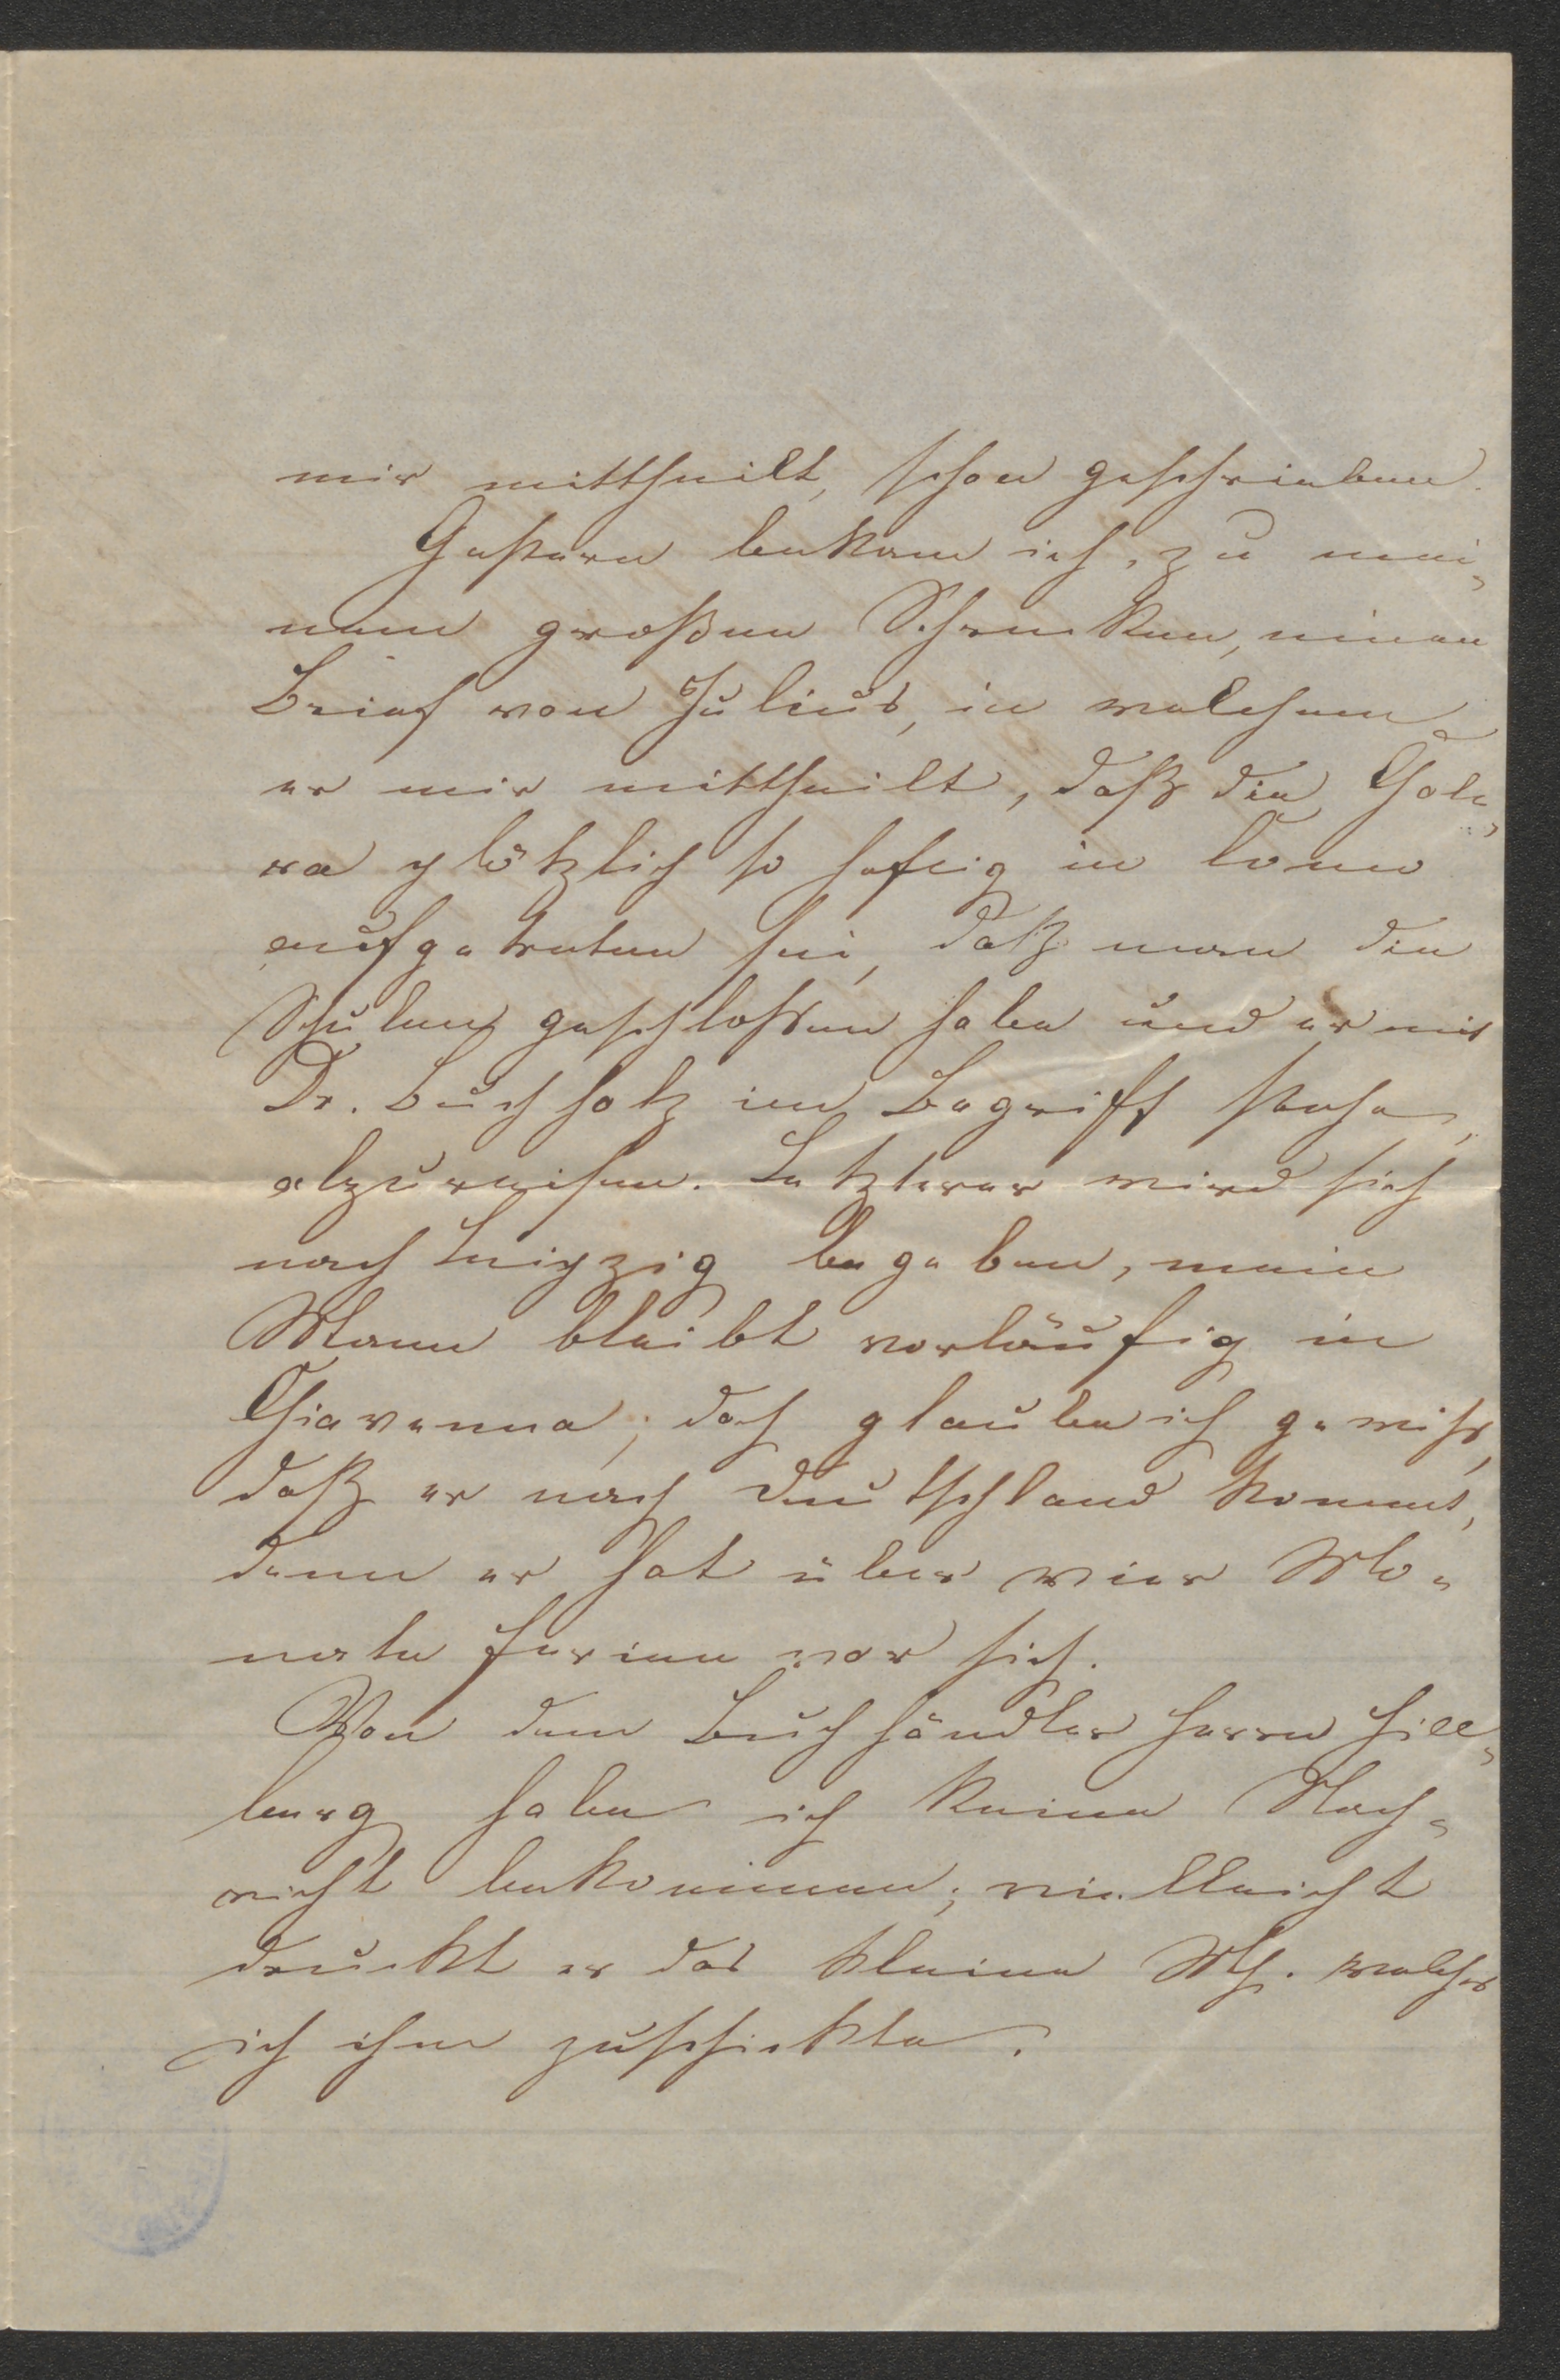 mir mittheilt, schon geschrieben.
Gestern bekam ich, zu mei-
nem großen Schrecken, einen
Brief von Julius, in welchem
er mir mittheilt, daß die Chole-
ra plötzlich so heftig in Como
aufgetreten sei, daß man die
Schulen geschlossen habe und er mit
Dr. Buchholz im Begriff stehe,
abzureisen. Letzterer wird sich
nach Leipzig begeben, mein
Mann bleibt vorläufig in
Chiavenna; doch glaube ich gewiß,
daß er nach Deutschland kommt,
denn er hat über vier Mo-
nate Ferien vor sich.
Von dem Buchhändler Herrn Hill-
berg habe ich keine Nach-
richt bekommen; vielleicht
druckt er das kleine Ms. welches
ich ihm zuschickte.